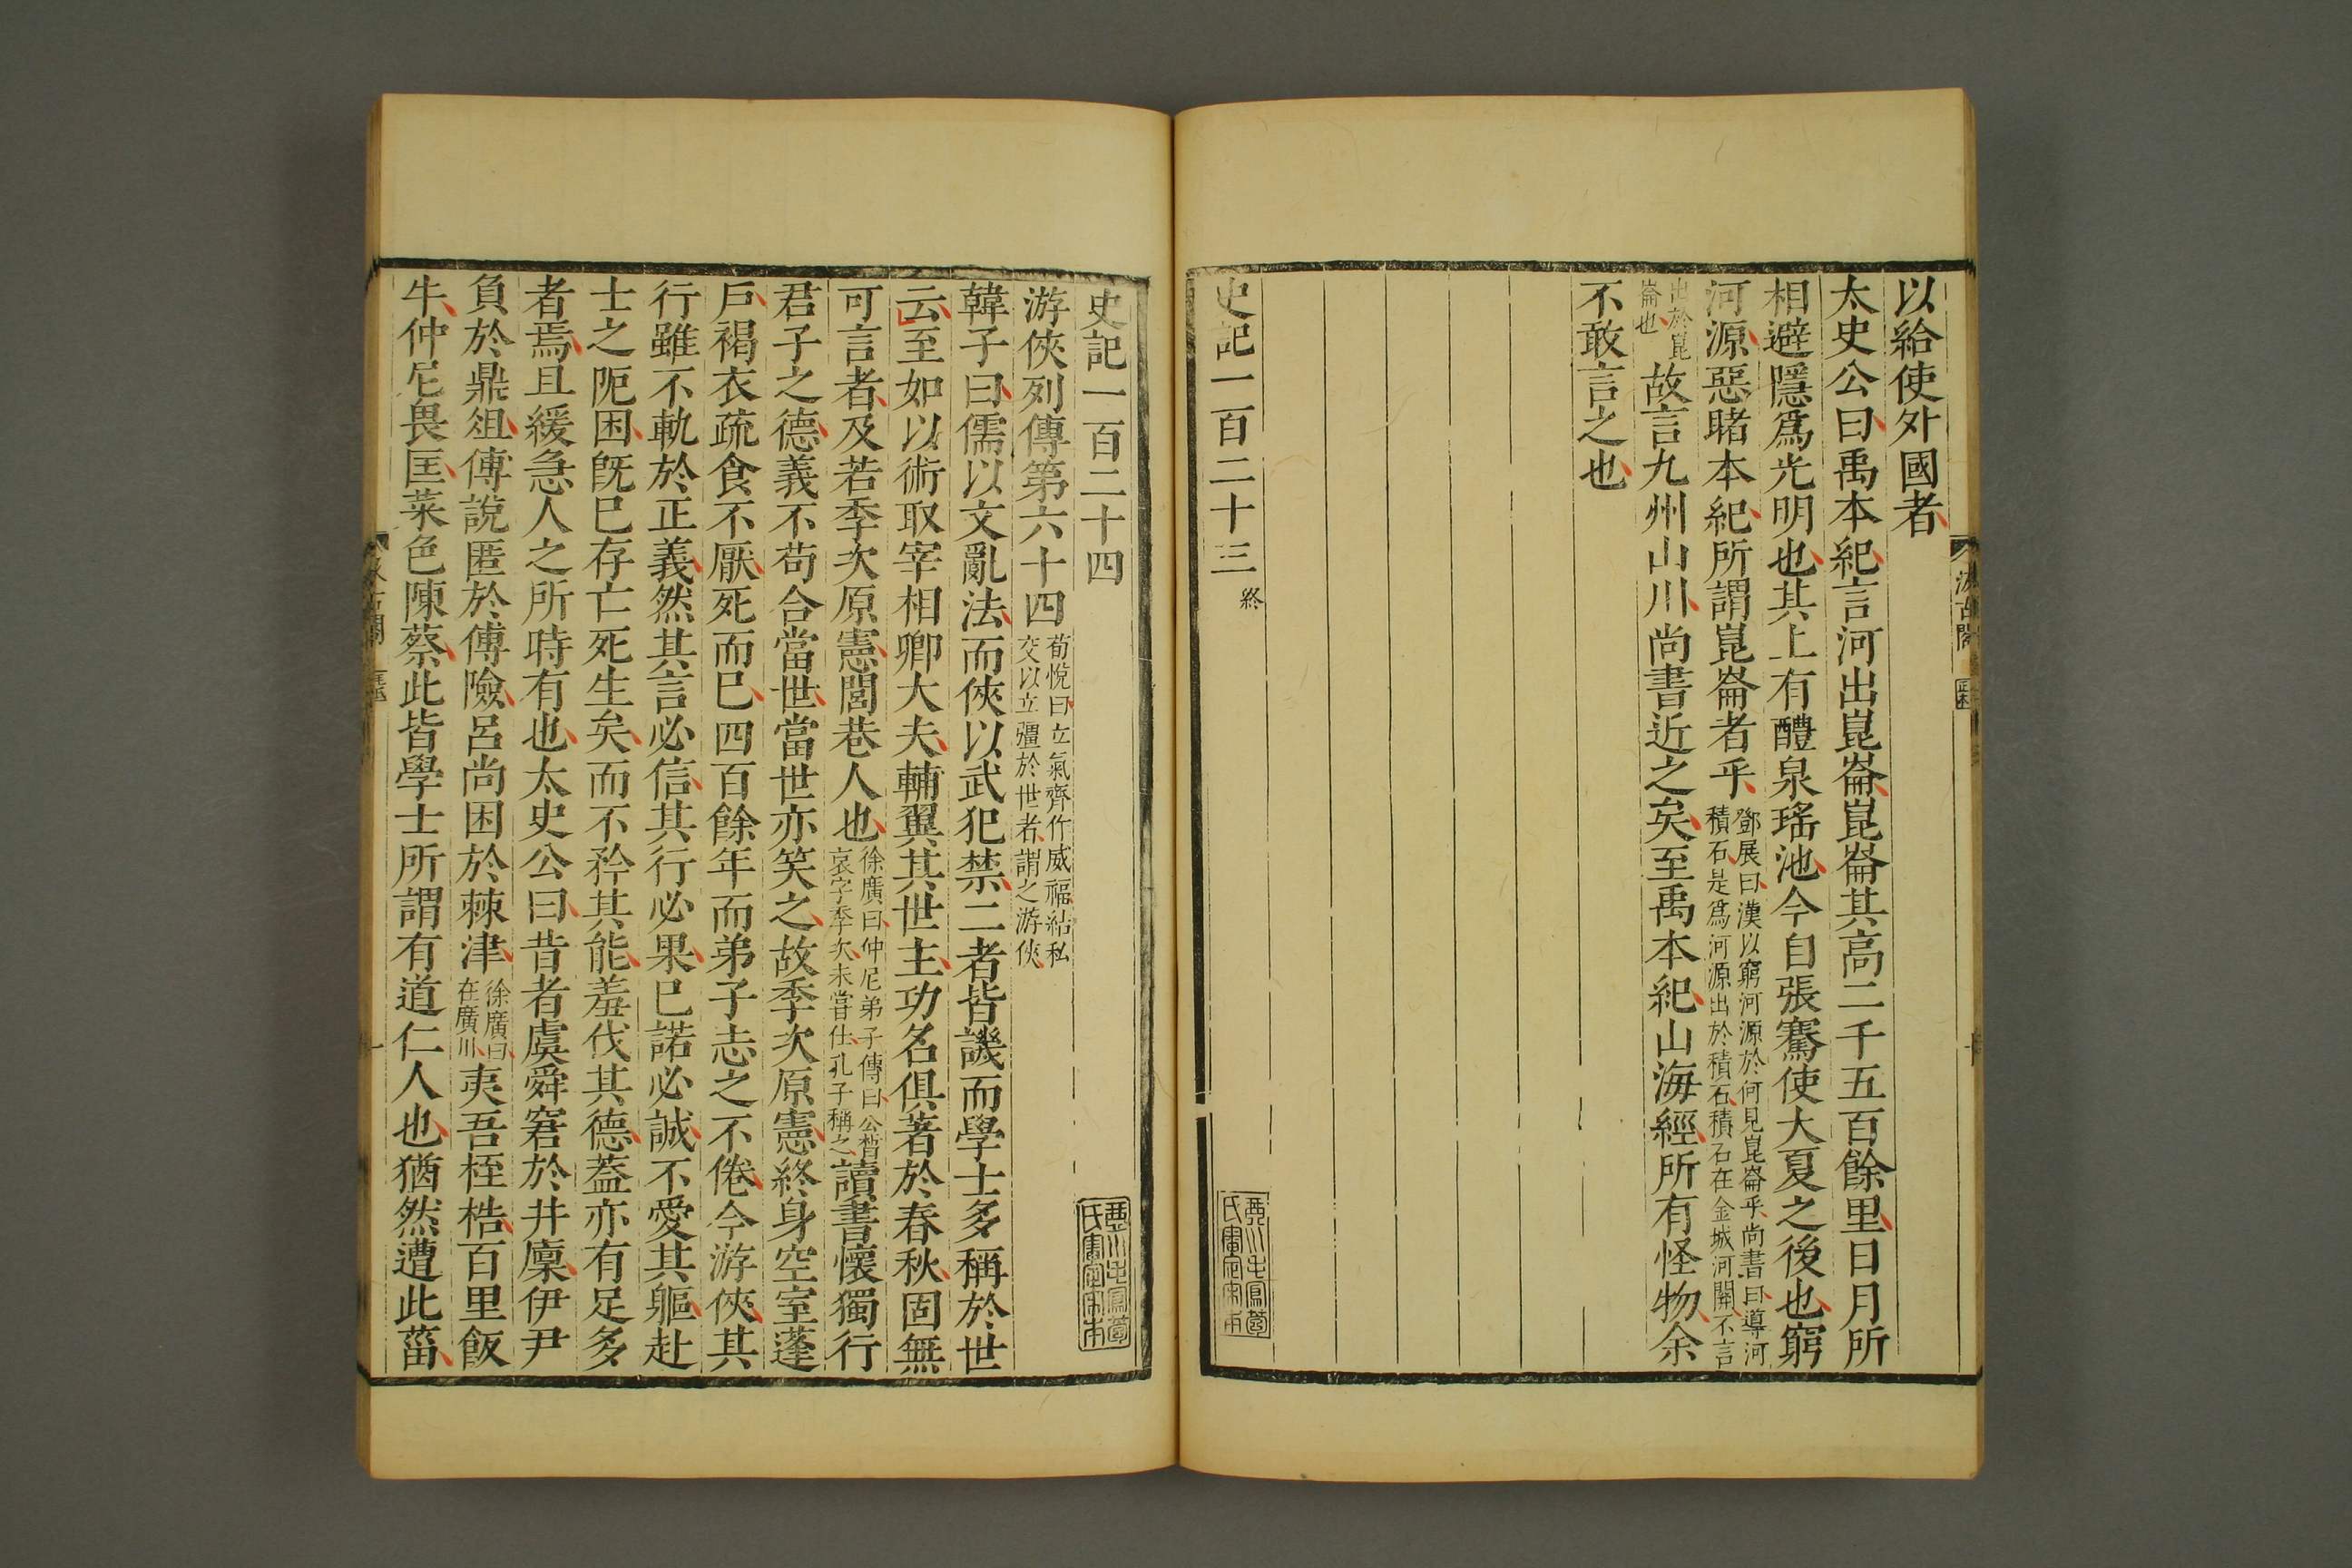 以給使外國者
太史公曰禹本紀言河出崑崙崑崙其高二千五百餘里日月所
相避隱爲光明也其上有醴泉瑤池今自張騫使大夏之後也窮
河源惡睹本紀所謂崑崙者乎鄧展曰漢以窮河源於何見崑崙乎尚書曰導河積石是爲河源出於積石積石在金城河關不言
出於崑崙也故言九州山川尚書近之矣至禹本紀山海經所有怪物余
不敢言之也
史記一百二十三終
汲古閣
史記一百二十四
游俠列傳第六十四荀悅曰立氣齊作威福結私交以立彊於世者謂之游俠
韓子曰儒以文亂法而俠以武犯禁二者皆譏而學士多稱於世
云至如以術取宰相卿大夫輔翼其世主功名俱著於春秋固無
可言者及若季次原憲閭巷人也徐廣曰仲尼弟子傳曰公晳哀字季次未嘗仕孔子稱之讀書懷獨行
君子之德義不苟合當世當世亦笑之故季次原憲終身空室蓬
戶褐衣疏食不厭死而已四百餘年而弟子志之不倦今游俠其
行雖不軌於正義然其言必信其行必果已諾必誠不愛其軀赴
士之阨困旣已存亡死生矣而不矜其能羞伐其德蓋亦有足多
者焉且緩急人之所時有也太史公曰昔者虞舜窘於井廩伊尹
負於鼎俎傅說匿於傅險呂尚困於棘津徐廣曰在廣川夷吾桎梏百里飯
牛仲尼畏匡菜色陳蔡此皆學士所謂有道仁人也猶然遭此菑